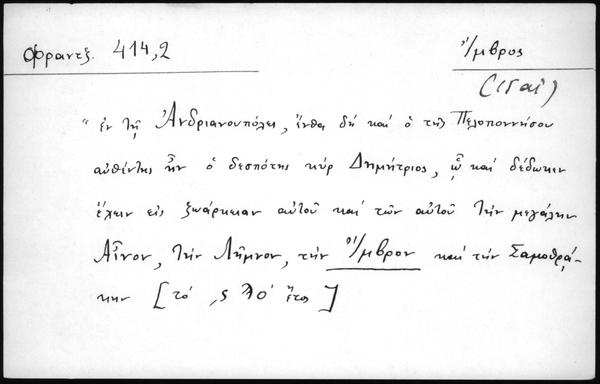 Φραντζ. 414,2
Ἴμβρος
"ἐν τῇ Ἀνδριανουπόλει, ἔνθα δὴ καί ὁ τῆς Πελοποννήσου
αὐθέντης ἦν ὁ δεσπότης κύρ Δημήτριος, ᾧ καί δέδωκεν
ἔχειν εἰς ζωάρκειαν αὐτοῦ καί τῶν αὐτοῦ τὴν μεγάλην
Αἶνον, τὴν Λῆμνον, τὴν Ἴμβρον καί τὴν Σαμοθρᾴ-
κην [τό ,ϛ λο' ἔτος]